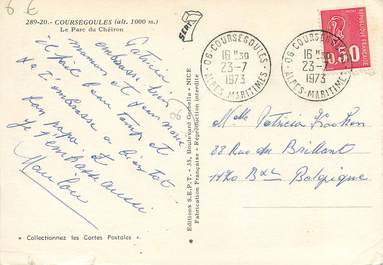 6 €
289-20.- COURSEGOULES (alt. 1000 m.)
Le Parc du Chéiron
Patricia,
embrasse bien
maman et
il fait beau temps et
Je t'embrasse à bientôt
papa et
j'embrasse aussi
« Collectionnez les Cartes Postales »
Editions S.E.P.T. - 31, Boulevard - NICE
Fabrication Française - Reproduction interdite
SEPT
06 - COURSEGOULES
16 H 30
23 - 7
1973
ALPES-MARITIMES
06 - COURSEGOULES
16 H 30
23 - 7
1973
ALPES-MARITIMES
0,50
Melle Patricia
22 Rue du Brillant
1170 Bxl Belgique